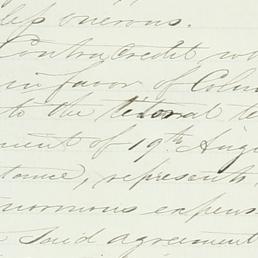 less onerous.
Contra, Credit
in favor of Colu
to the literal te
ment of 19th Aug
tance, represents
enormous expens
said agreement